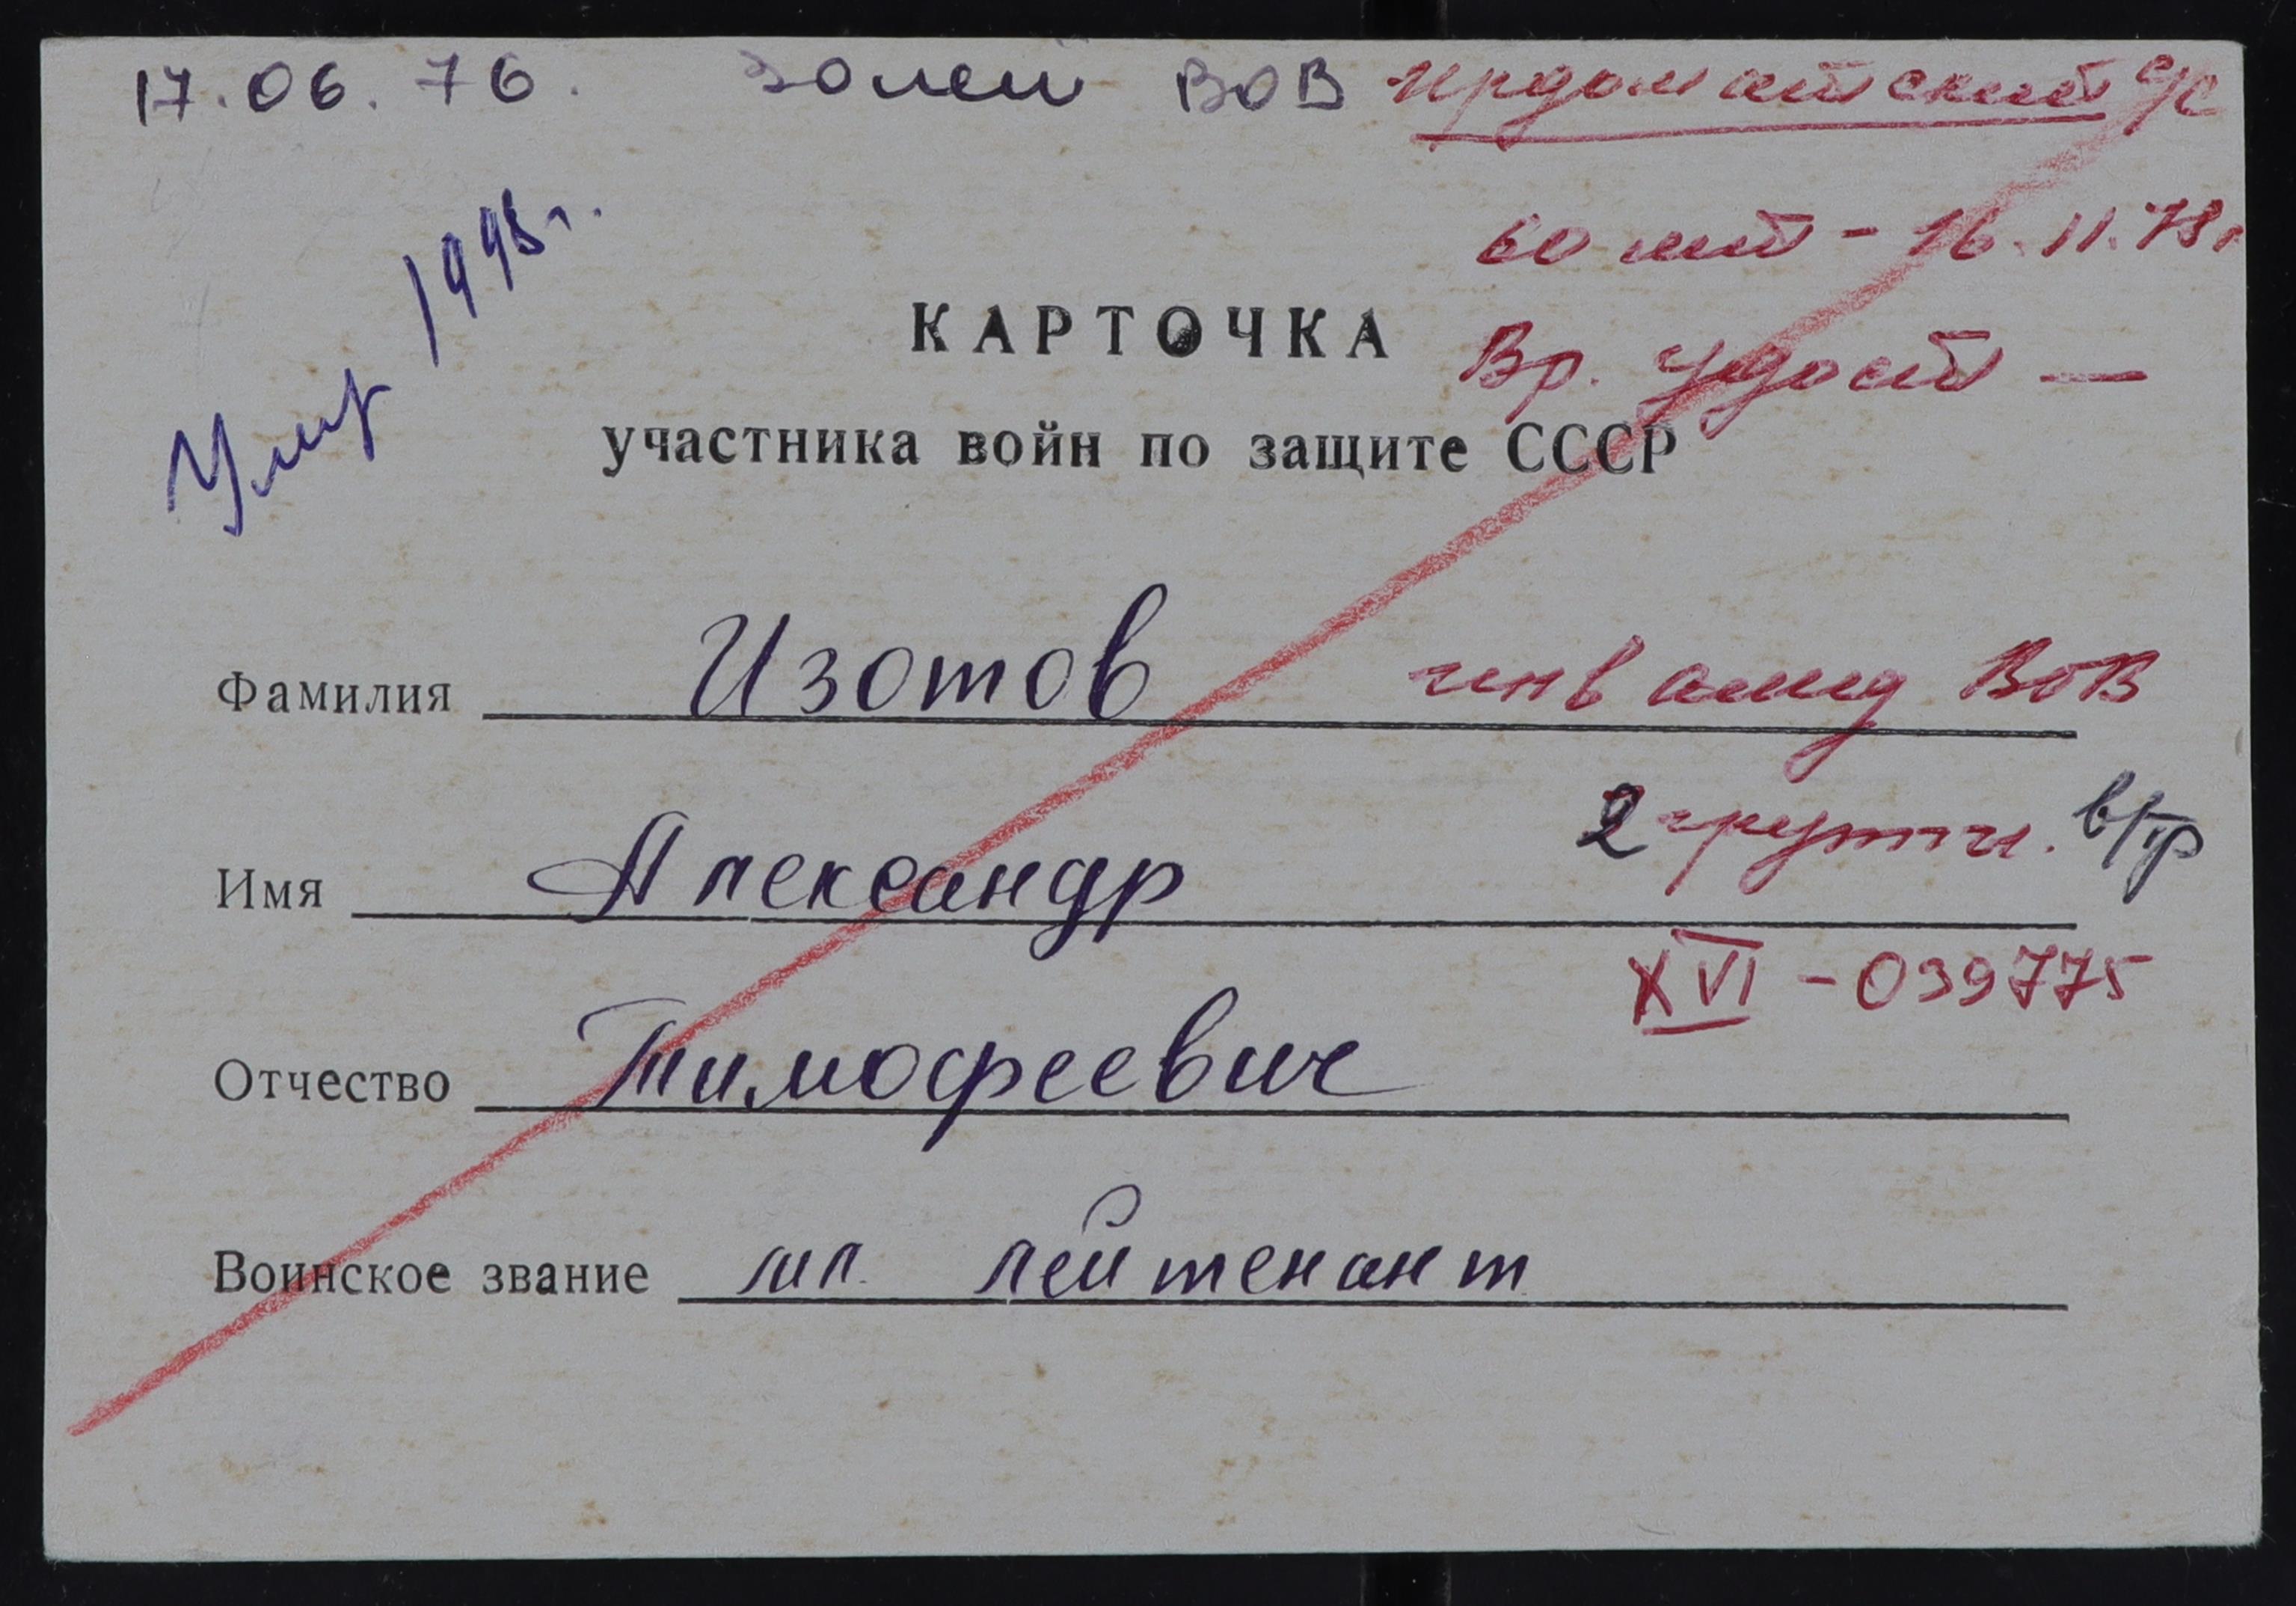 17.06.76. 30 лет ВОВ Ирдоматский с/с
60 лет - 16.11.78г
Умер 1995г.
КАРТОЧКА
Вр. удост —
участника войн по защите СССР
Фамилия Изотов инвалид ВОВ
2 группы. в/тр
Имя Александр
XVI - 039775
Отчество Тимофеевич
Воинское звание мл. лейтенант